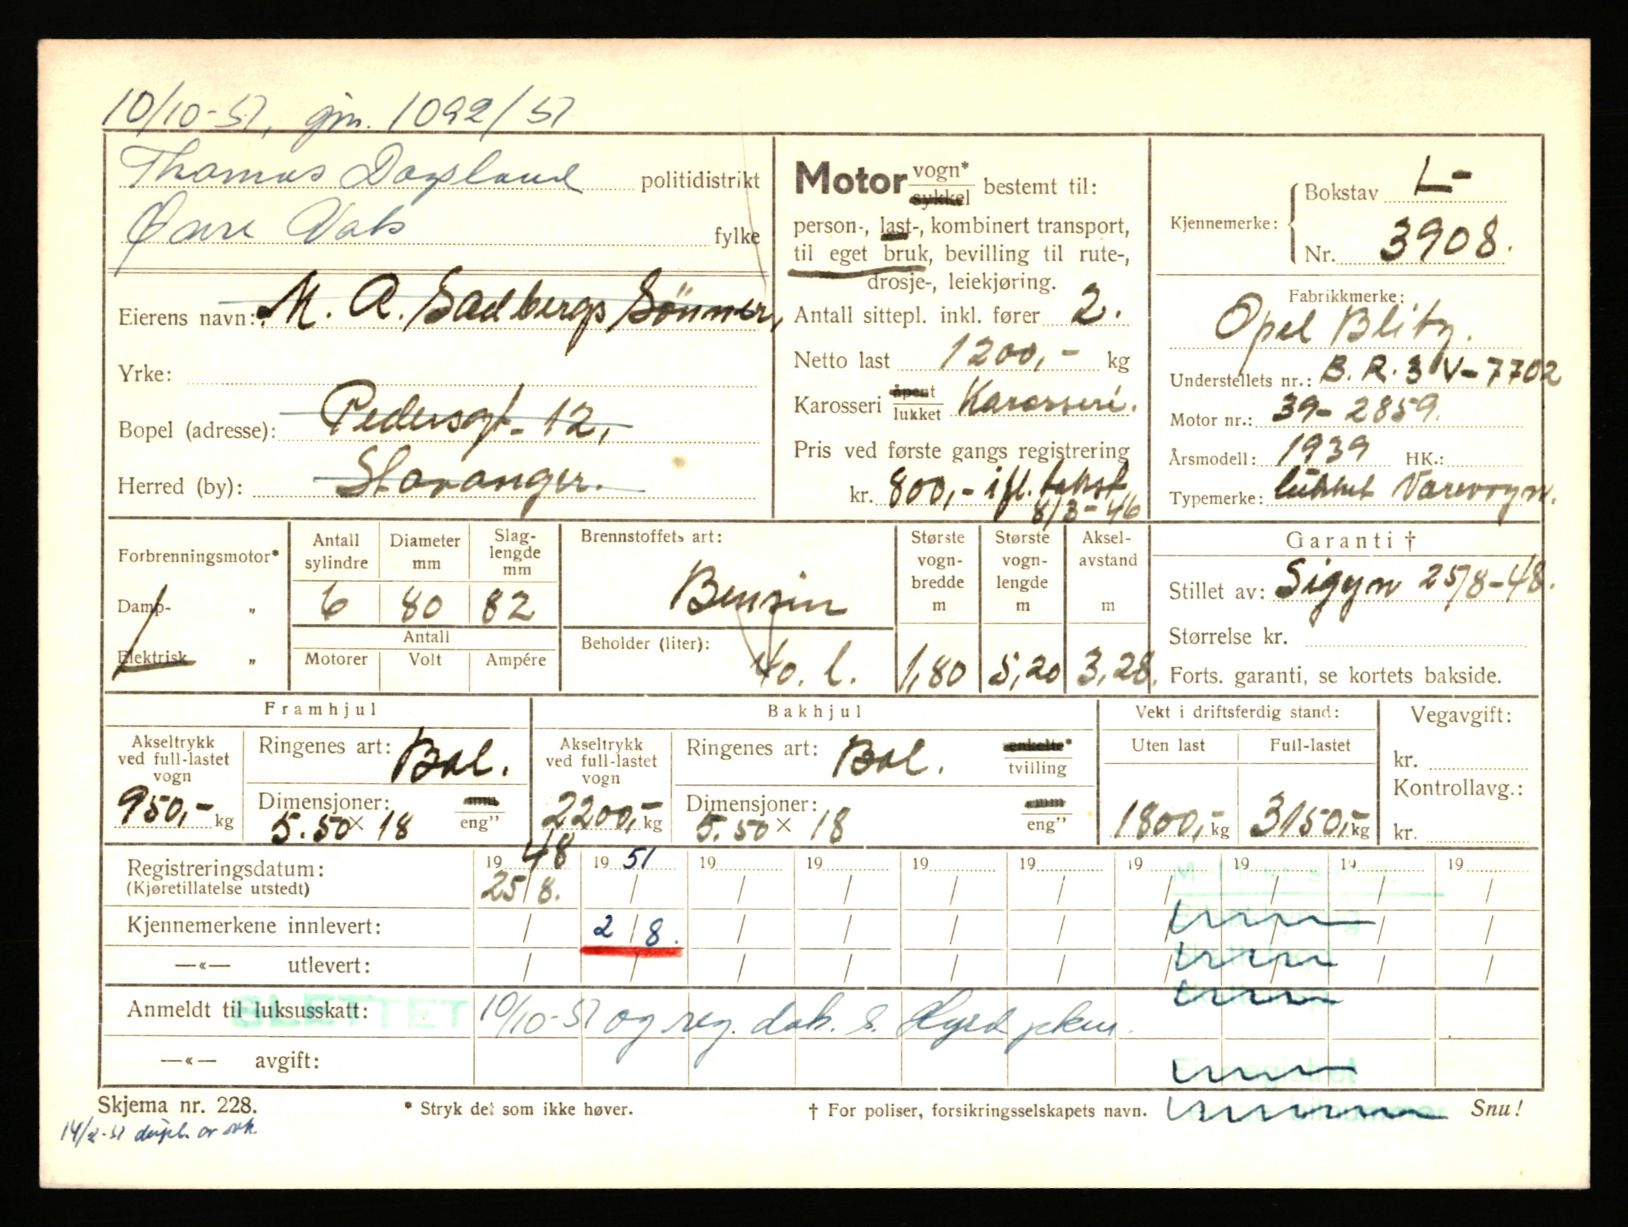 10/10-51, gjn. 1092/51
Thomas Dagsland politidistrikt
Øvre Vats fylke
Eierens navn: M. A. Sadbergs Sönner,
Yrke:
Bopel (adresse): Pedersgt. 12,
Herred (by): Stavanger.
Motor vogn* sykkel bestemt til:
person-, last-, kombinert transport,
til eget bruk, bevilling til rute-,
drosje-, leiekjøring.
Antall sittepl. inkl. fører 2.
Netto last 1200,- kg
Karosseri åpent lukket Karosseri.
Pris ved første gangs registrering
kr. 800,- ifl. takst
8/3-46
Kjennemerke: Bokstav L-
Nr. 3908.
Fabrikkmerke:
Opel Blitz.
Understellets nr.: B. R. 3 V-7702
Motor nr.: 39-2859.
Årsmodell: 1939 HK.:
Typemerke: lukket Varevogn.
Forbrenningsmotor*
Damp- „
Elektrisk „
Antall sylindre Diameter mm Slaglengde mm
6 80 82
Antall
Motorer Volt Ampére
Brennstoffets art:
Bensin
Beholder (liter):
40. l.
Største vogn-bredde m Største vogn-lengde m Aksel-avstand m
1,80 5,20 3,28.
Garanti †
Stillet av: Sigyn 25/8-48.
Størrelse kr.
Forts. garanti, se kortets bakside.
Framhjul
Akseltrykk ved full-lastet vogn
950,- kg
Ringenes art: Bal.
Dimensjoner: mm
5.50 × 18 eng”
Bakhjul
Akseltrykk ved full-lastet vogn
2200,- kg
Ringenes art: Bal. enkelte* tvilling
Dimensjoner: mm
5.50 × 18 eng”
Vekt i driftsferdig stand:
Uten last Full-lastet
1800,- kg 3150,- kg
Vegavgift:
kr.
Kontrollavg.:
kr.
Registreringsdatum: 19 48 19 51 19 19 19 19 19 19 19 19
(Kjøretillatelse utstedt) 25/8.
Kjennemerkene innlevert: 2/8.
—«— utlevert:
SLETTET
Anmeldt til luksusskatt: 10/10-51 og reg. dok. s.
—«— avgift:
Skjema nr. 228. * Stryk det som ikke høver. † For poliser, forsikringsselskapets navn. Snu!